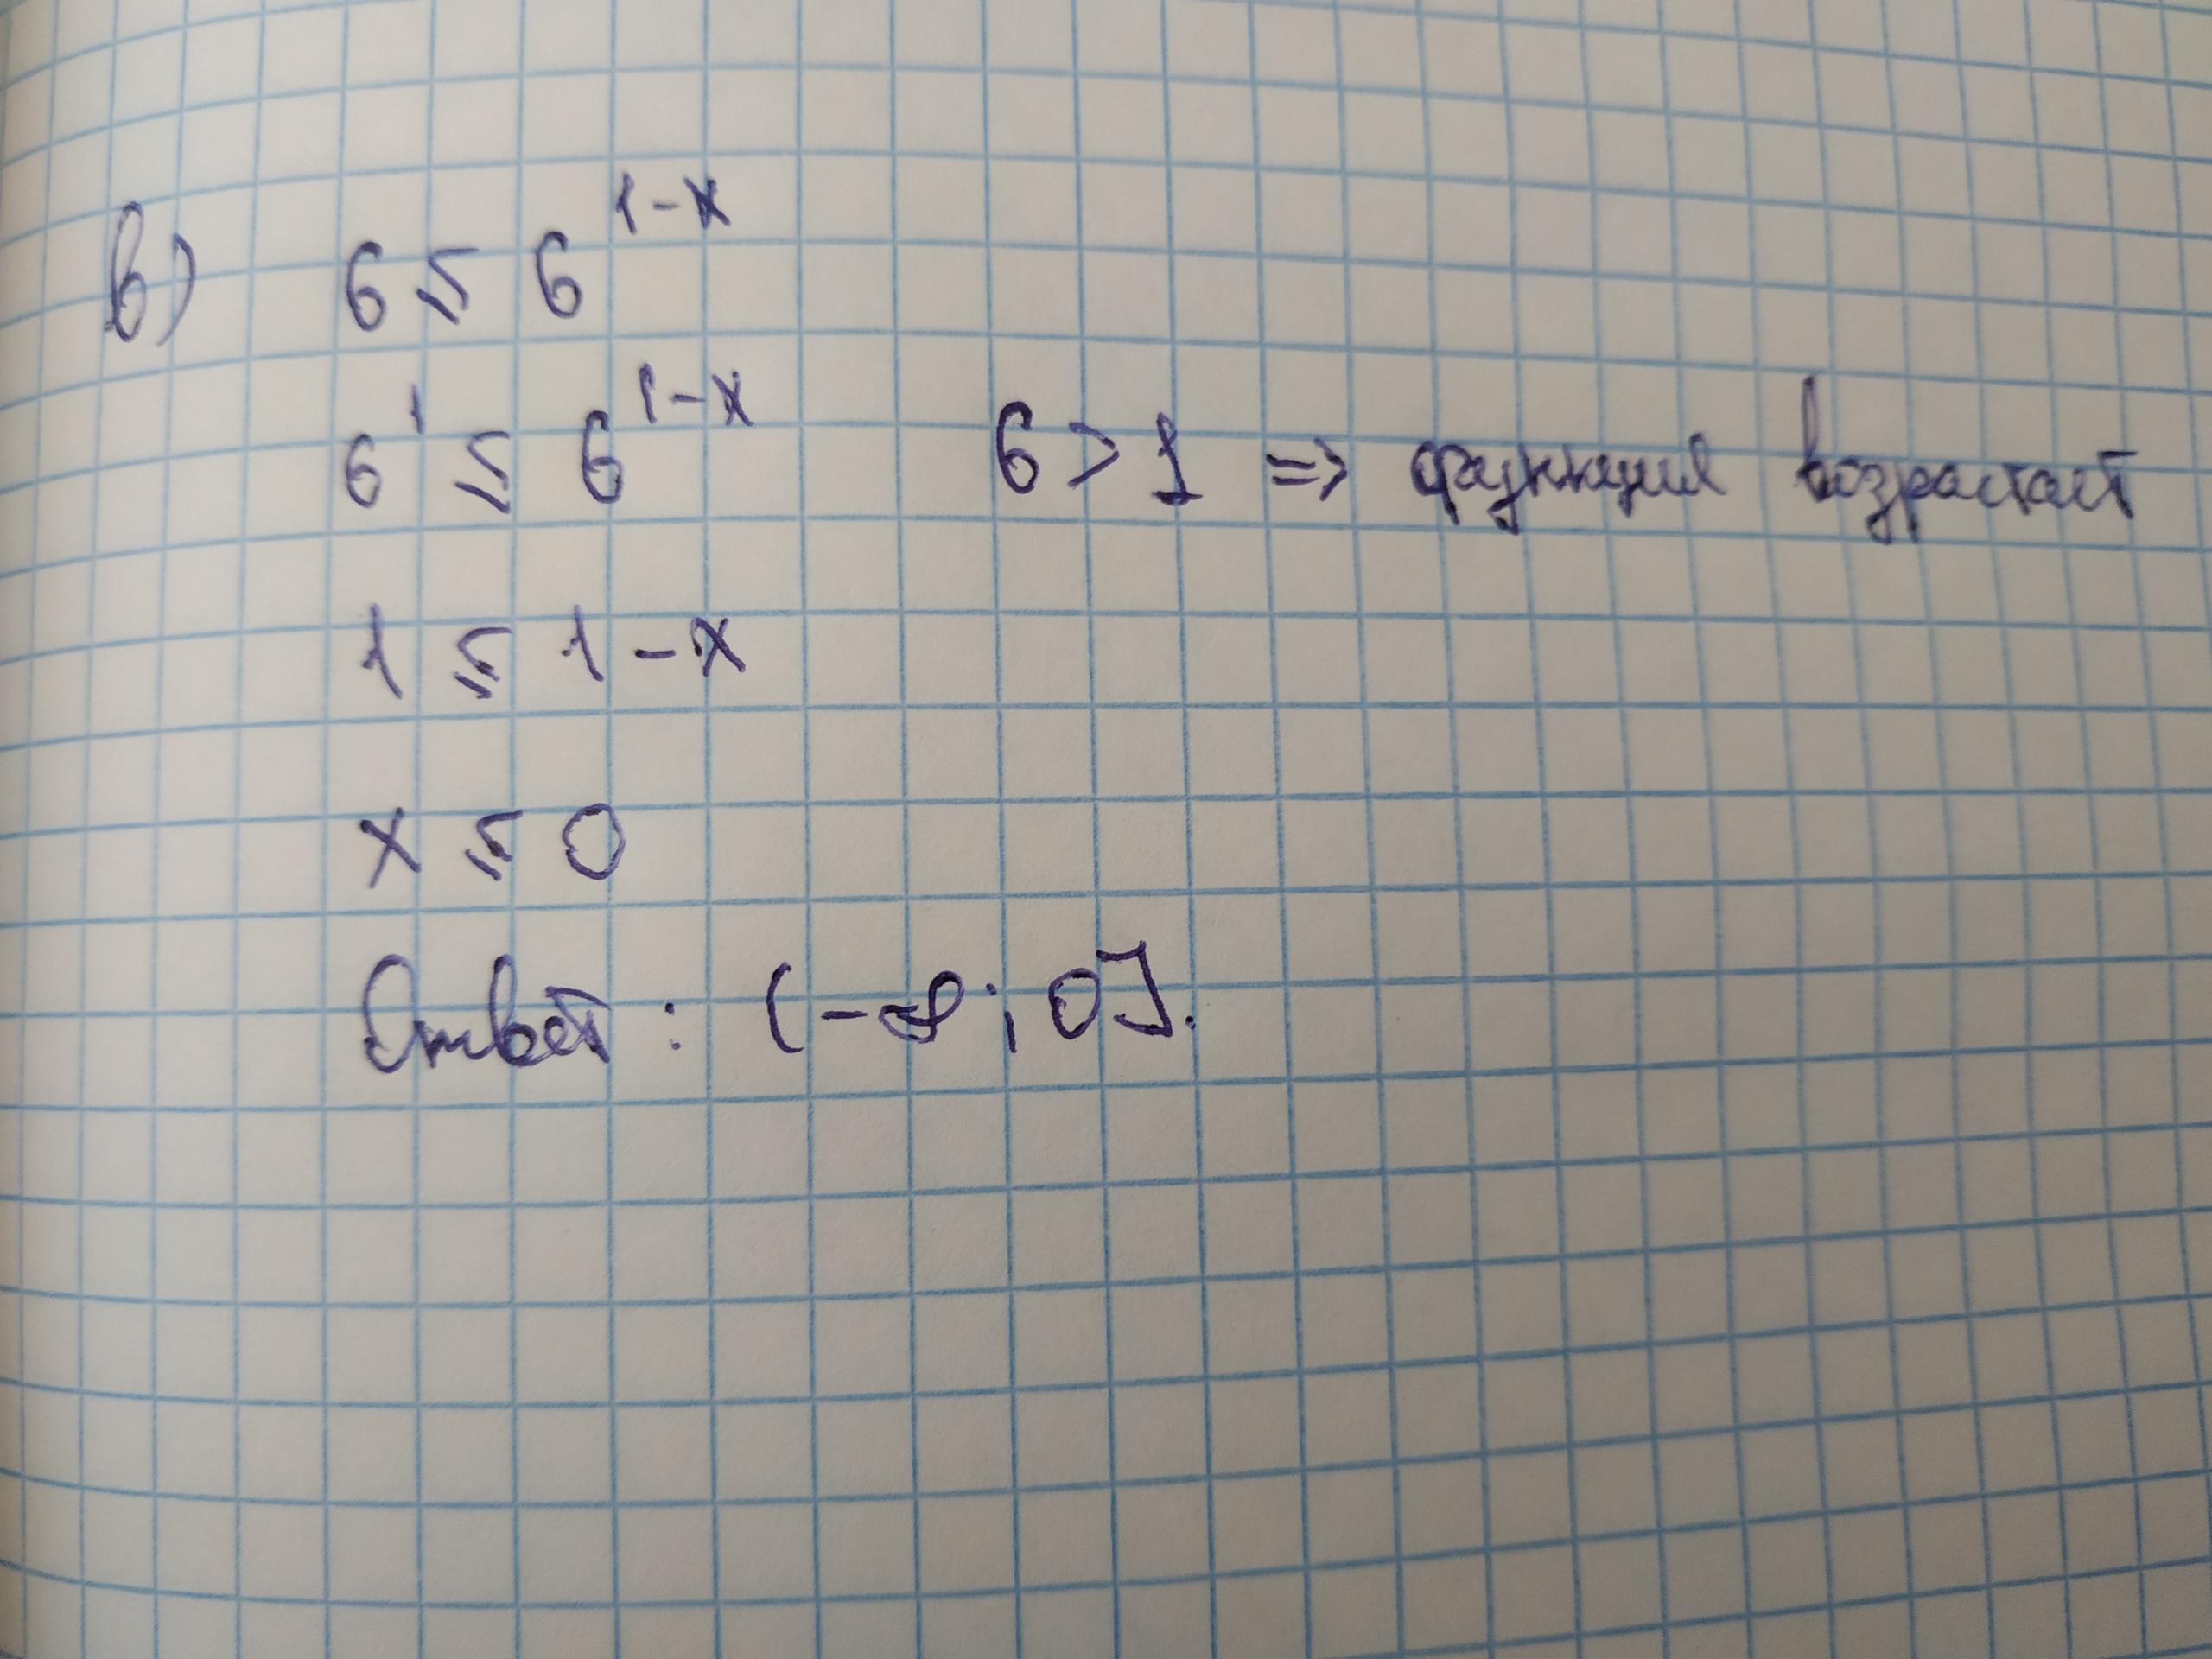 в) 6 ≤ 6^{1-x}
6^1 ≤ 6^{1-x} 6 > 1 => функция возрастает
1 ≤ 1 - x
x ≤ 0
Ответ: (-∞; 0].